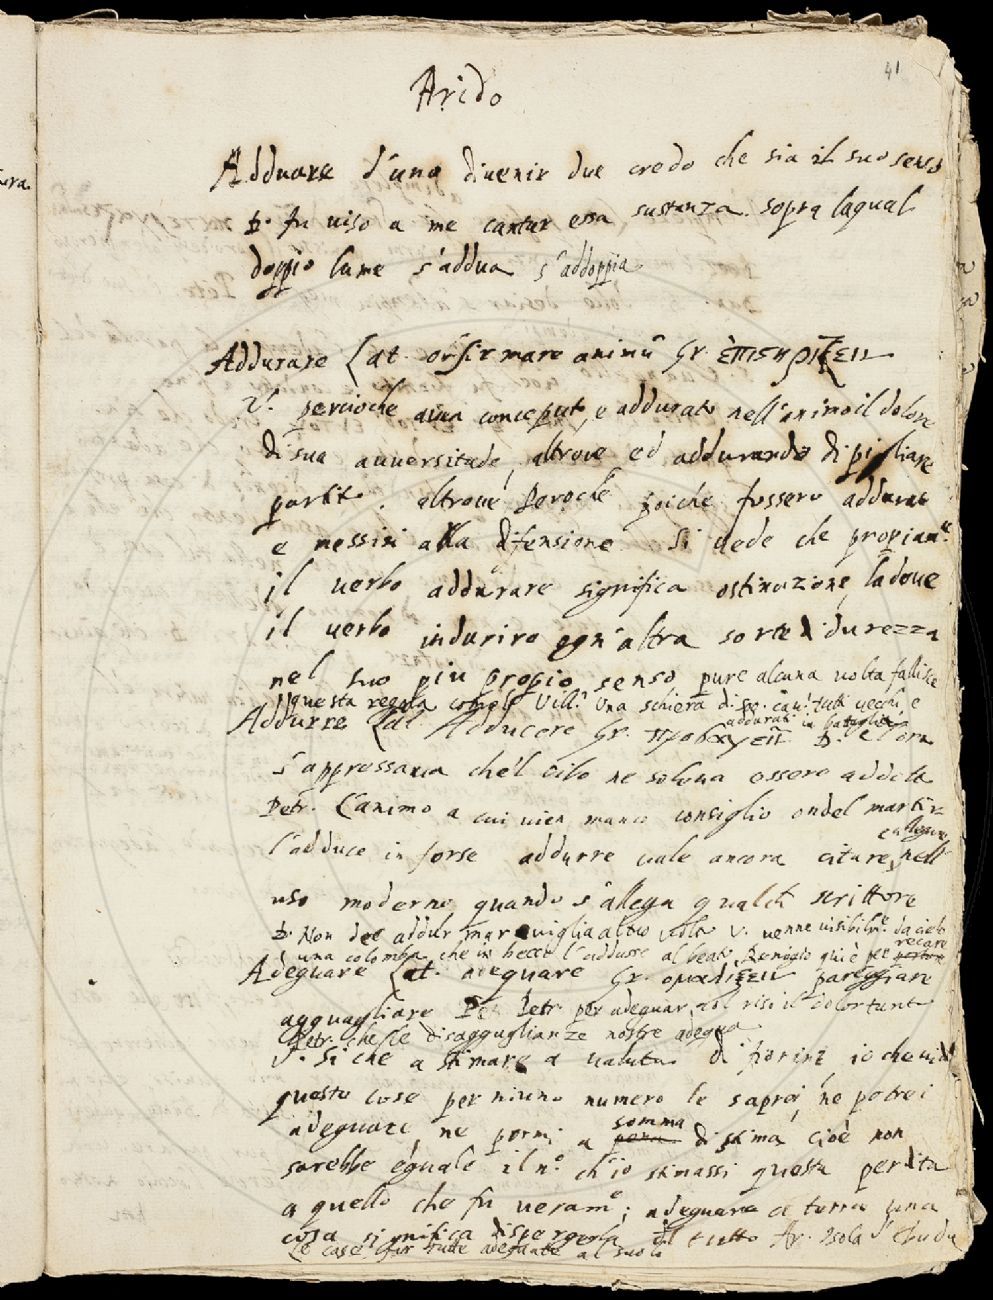 41
Arido
Adduare d'uno divenir due credo che sia il suo senso
D. fu viso a me cantar essa sustanza sopra laqual
doppio lume s'addua s'addoppia
Addurare Lat. animũ Gr.
V. percioche avea conceputo, e addurato nell'animo il dolore
di sua auuersitade, altroue ed addurando di pigliare
partito. altroue Peroche poiche fussero addurati
e messisi alla difensione. Si uede che propiam.te
il uerbo addurare significa ostinazione, ladoue
il uerbo indurire ogn'altra sorte di durezza
nel suo piu propio senso pure alcuna uolta fallisce
questa regola Vill. Una schiera di tutti uecchi, e
addurati in battaglia
Addurre Lat Adducere Gr. D. e l'ora
s'appressaua che'l cibo ne soleua essere addotto
Petr. L'animo a cui vien manco consiglio ondel martir
l'adduce in forse addurre uale ancora citare, e allegare nell
uso moderno quando s'allega qualch scrittore
D. Non dee addur marauiglia al tuo volto V. uenne uisibilm.e da cielo
una colomba, che in becco l'addusse al beato Remigio qui è per recare
Adeguare Lat. adequare Gr. pareggiare
agguagliare Petr. per adeguar col riso i dolor tanti
Petr. che le disagguaglianze nostre adegua
V. Si che a stimare a ualuta di fiorini, io che uidi
queste cose per niuno numero le saprei, ne potrei
adeguare, ne pormi a somma di stima cioè non
sarebbe eguale il n.o ch'io stimassi questa perdita
a quello che fu veram.e; adeguare a terra una
cosa significa dispergerla il tutto Ar.
Le case fur tutte adeguate al suolo